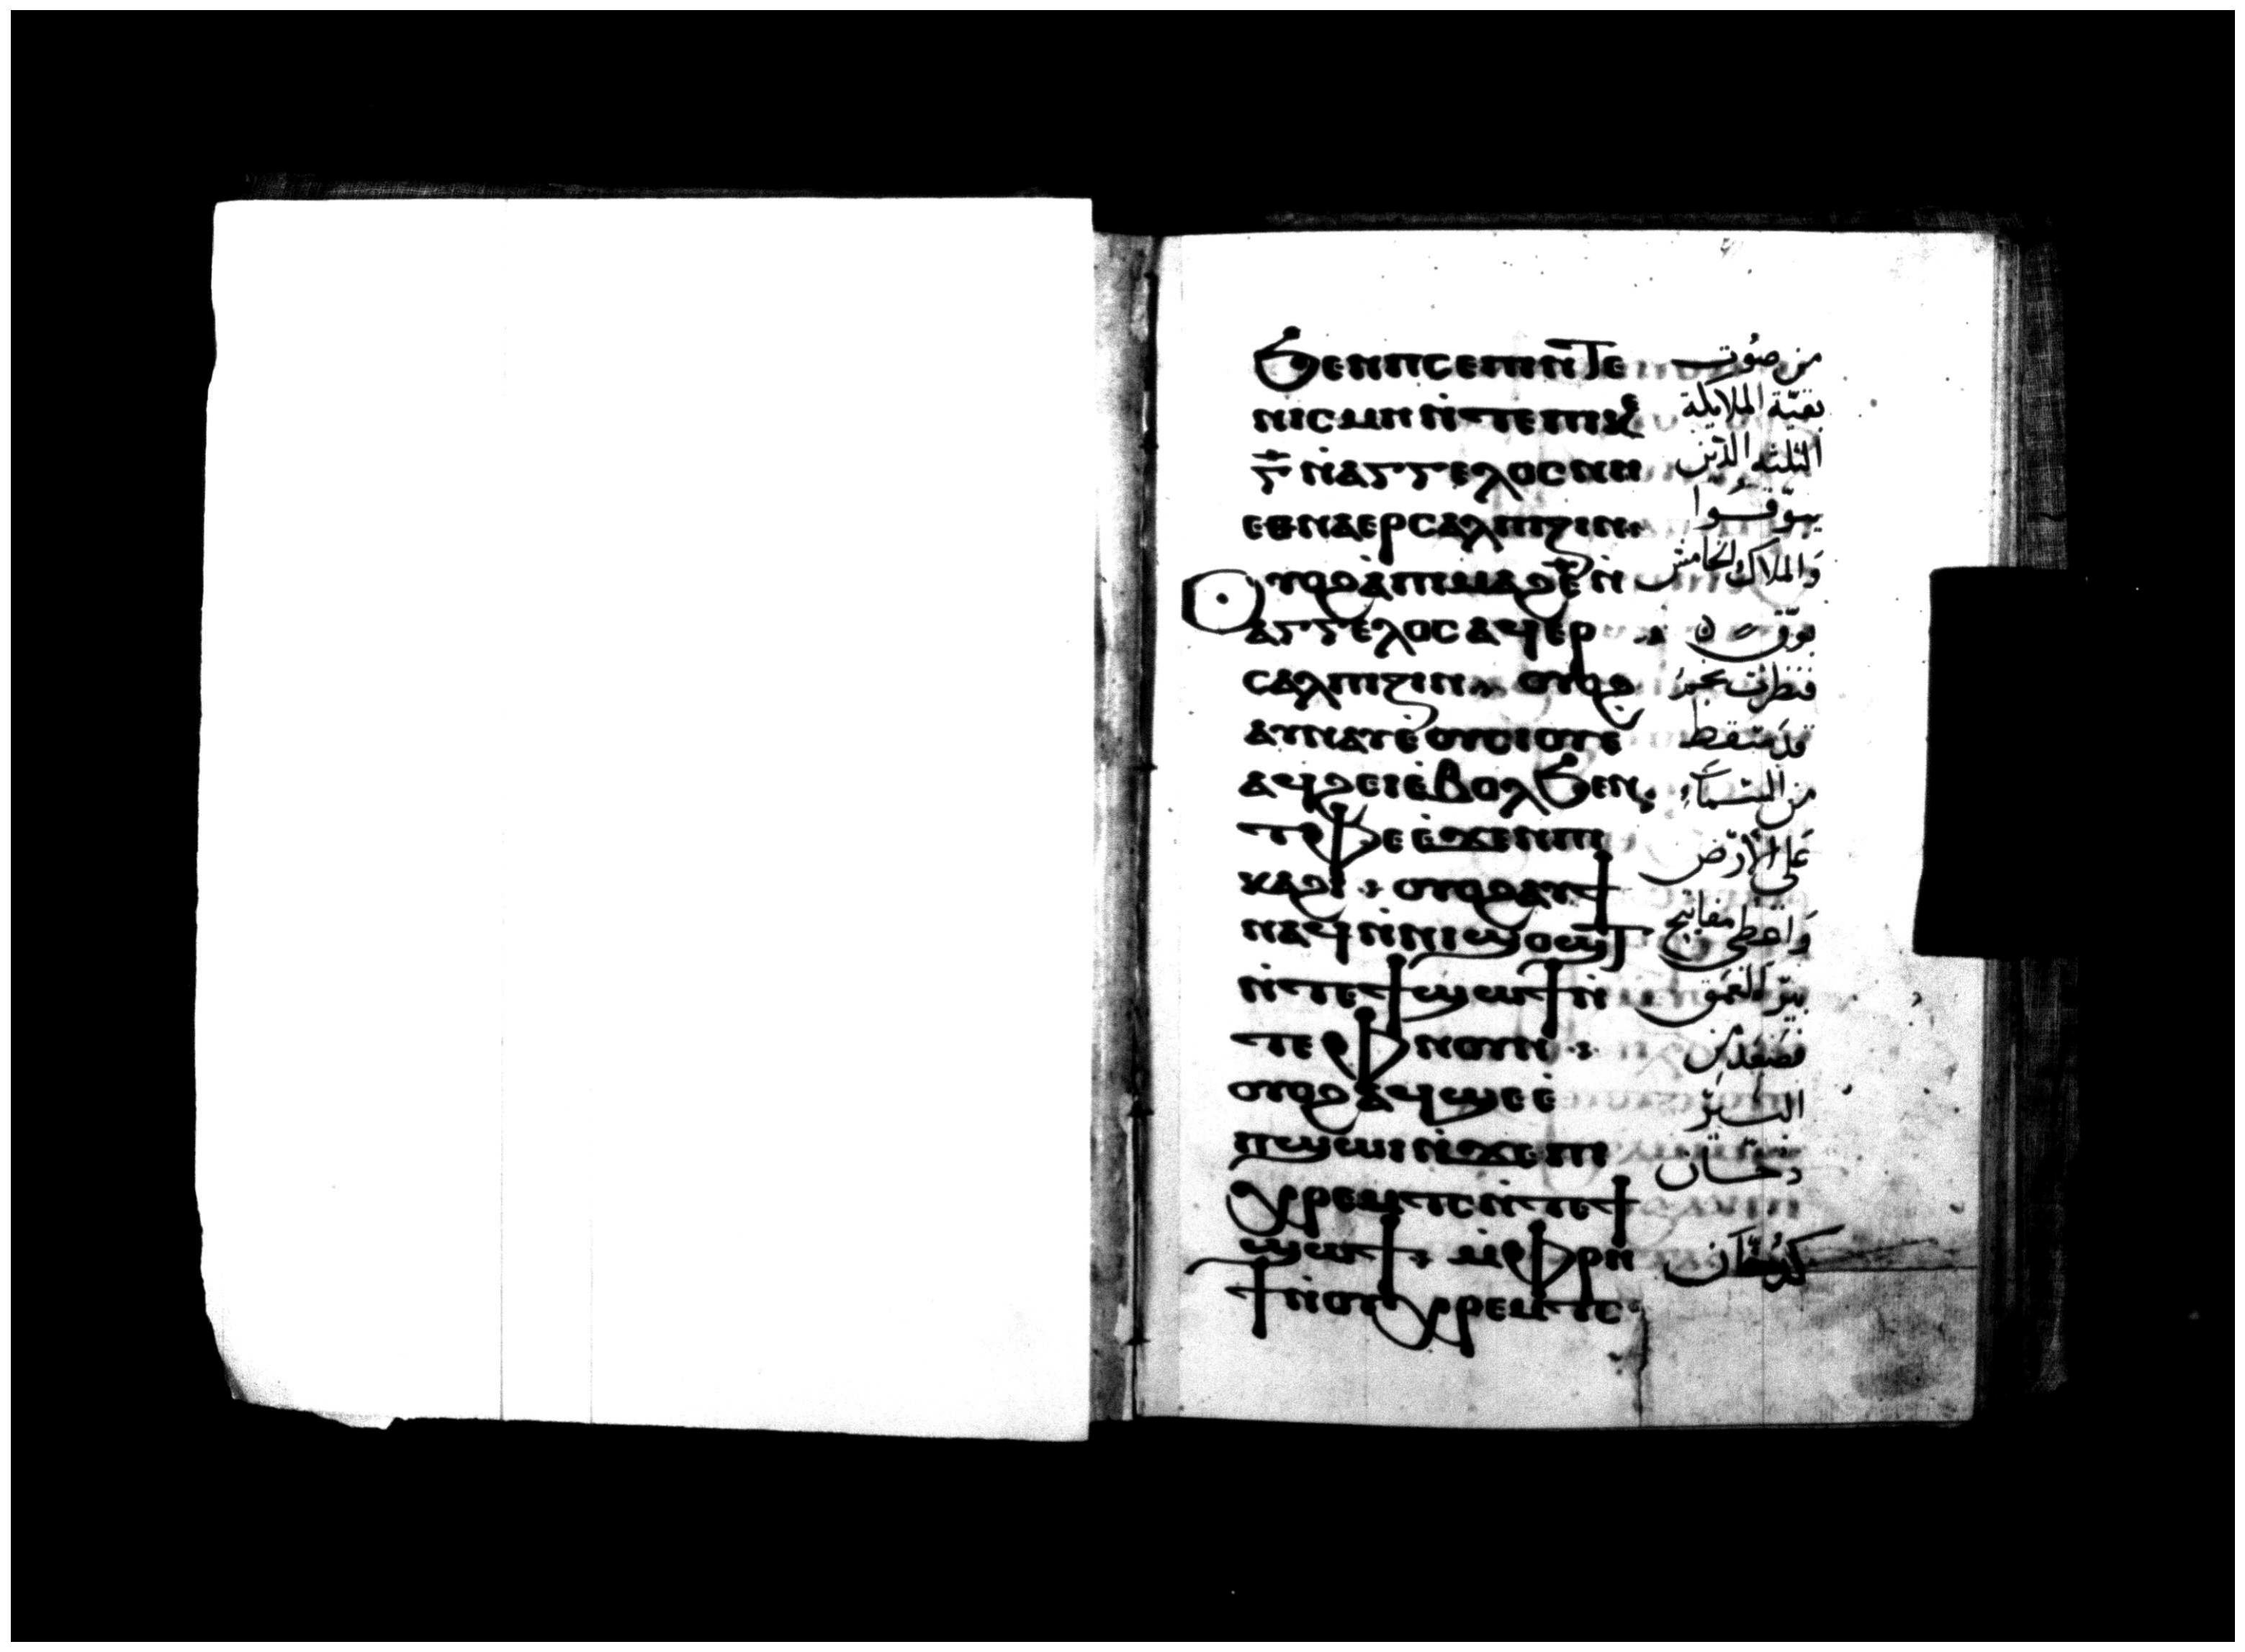 ϧⲉⲛⲡⲥⲉⲡⲓⲛ̀ⲧⲉ
ⲛⲓⲥⲙⲏⲛ̀ⲧⲉⲡⲓⲕⲉ
ⲅ̅ⲛ̀ⲁⲅⲅⲉⲗⲟⲥⲛⲏ
ⲉⲑⲛⲁⲉⲣⲥⲁⲗⲡⲓⲍⲓⲛ
ⲟⲩⲟϩⲁ̀ⲡⲓⲙⲁϩⲉ̅ⲛ̀
ⲁⲅⲅⲉⲗⲟⲥⲁϥⲉⲣ
ⲥⲁⲗⲡⲓⲍⲓⲛ ⲟⲩⲟϩ
ⲁⲩⲛⲁⲩⲉ̀ⲟⲩⲥⲓⲟⲩⲉ
ⲁϥϩⲉⲓⲉ̀ⲃⲟⲗϧⲉⲛ
ⲧⲫⲉⲉ̀ϫⲉⲛⲡⲓ
ⲕⲁϩⲓ ⲟⲩⲟϩⲁⲩϯ
ⲛⲁϥⲛ̀ⲛⲓϣⲟϣⲧ
ⲛ̀ⲧⲉϯϣⲱϯⲛ̀
ⲧⲉⲫⲛⲟⲩⲛ
ⲟⲩⲟϩⲁϥϣⲉⲉ̀
ⲡϣⲱⲓⲛ̀ϫⲉⲡⲓ
ⲭⲣⲉⲙⲧⲥⲛ̀ⲧⲉϯ
ϣⲱϯ ⲙ̀ⲫⲣⲏ
ϯⲛ̀ⲟⲩⲭⲣⲉⲙⲧⲥ
من صوت
بقية الملايكة
الثلثة الذين
يبوقوا
والملاك الخامس
بوق
فنظرت نجم
قد سقط
من السماء
على الارض
واعطى مفاتيح
بير العمق
فصعد من
البير
دخان
كدخان